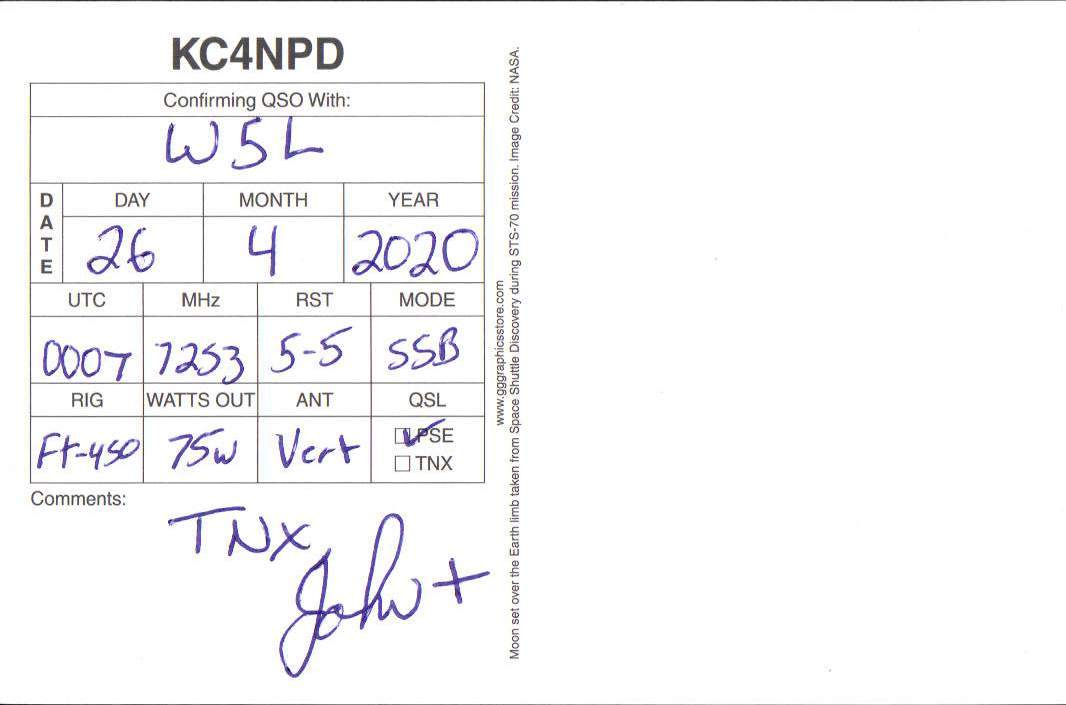 KC4NPD
Confirming QSO With:
W5L
DATE
DAY MONTH YEAR
26 4 2020
UTC MHz RST MODE
0007 7253 5-5 SSB
RIG WATTS OUT ANT QSL
Ft-450 75W Vert ☑ PSE
☐ TNX
Comments:
TNX
John +
www.gggraphicsstore.com
Moon set over the Earth limb taken from Space Shuttle Discovery during STS-70 mission. Image Credit: NASA.